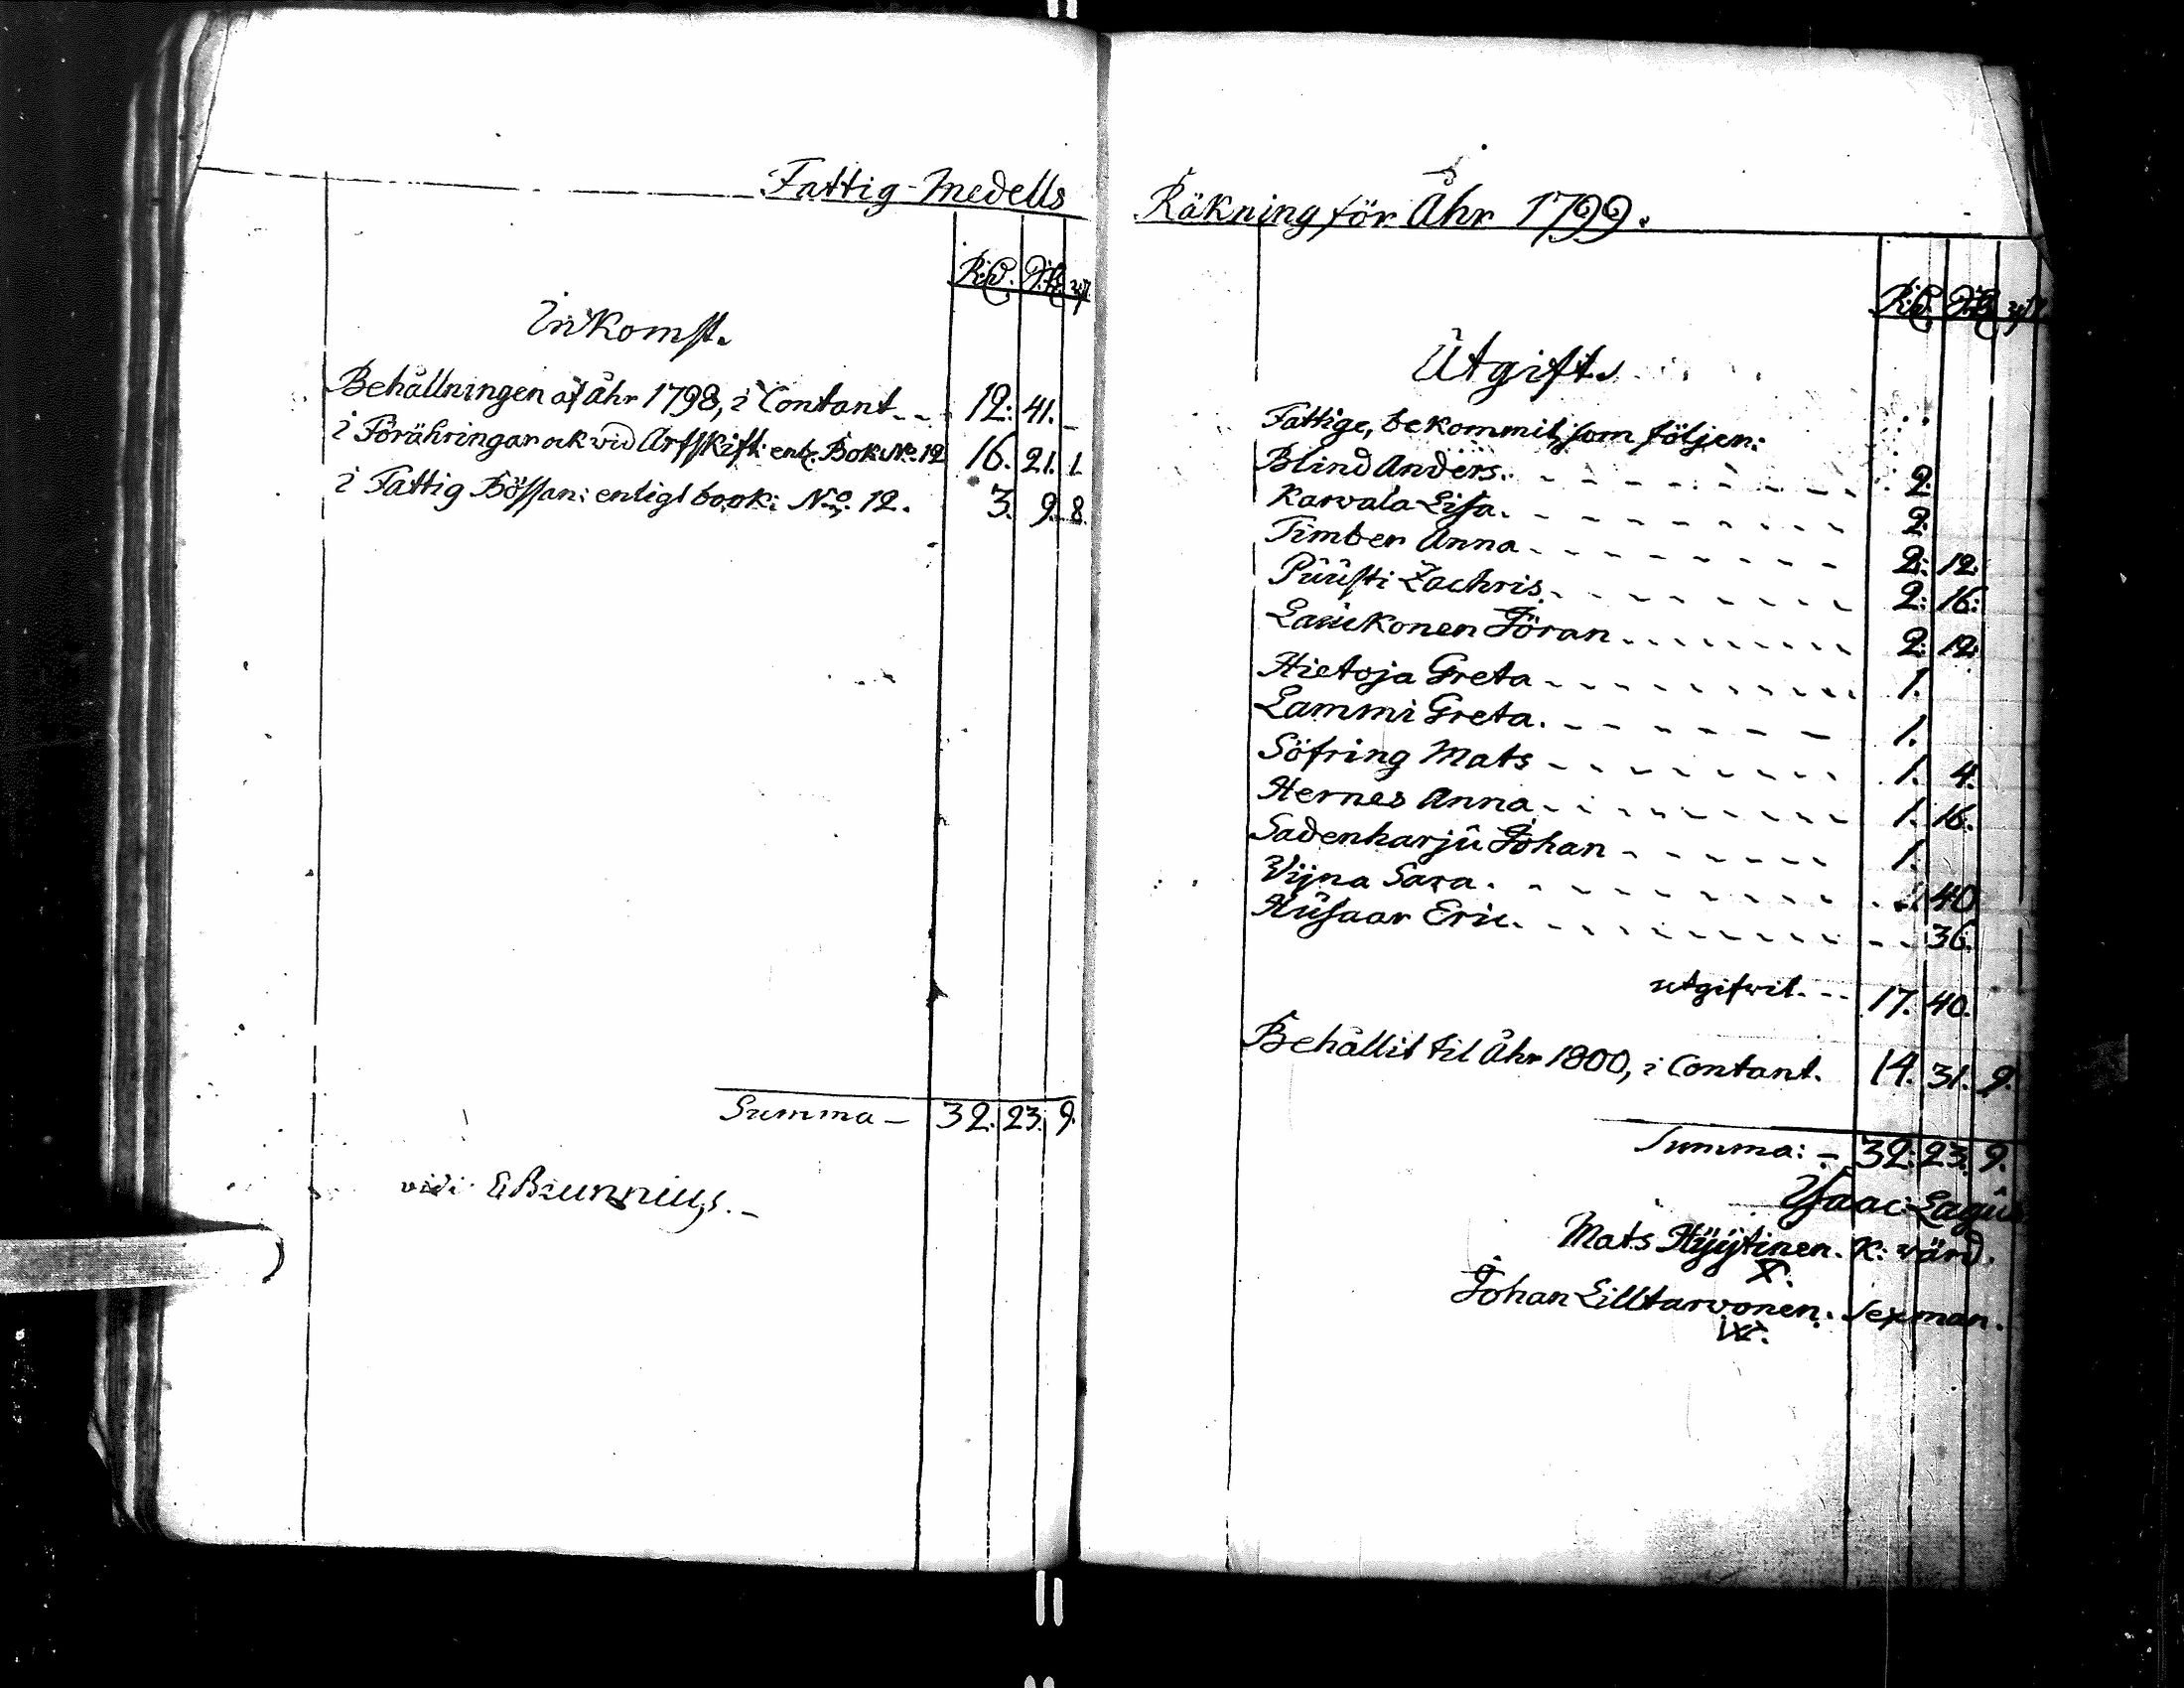 Fattig-Medells
R:d. ß. rst.
Inkomst.
Behållningen af Åhr 1798, i Contant - - 12: 41. -
i Förähringar ock vid Arfskift: enl. Bok: No. 12 16. 21. 1.
i Fattig Bössan: enligt book: No. 12. 3. 9. 8.
Summa - 32. 23. 9.
vidi EBrunnius. -
Räkning för Åhr 1799.
R:d. ß. rst.
Utgift.
Fattige, bekommit, som följer:
Blind Anders. 2.
Karvala Lisa. 2.
Timber Anna 2: 12.
Puusti Zachris. 2: 16:
Laukonen Jöran 2: 12.
Hietoja Greta 1.
Lammi Greta. 1.
Söfring Mats 1. 4.
Hernes Anna 1. 16.
Sadenharju Johan 1.
Vijna Sara. 40
Husaar Eric. 36.
utgifvit. - - 17. 40.
Behållit til Åhr 1800, i Contant. 14. 31. 9.
Summa: - 32: 23. 9.
Isaac: Lagus
Mats Hyytinen. K: värd.
X.
Johan Lilltarvonen. Sexman.